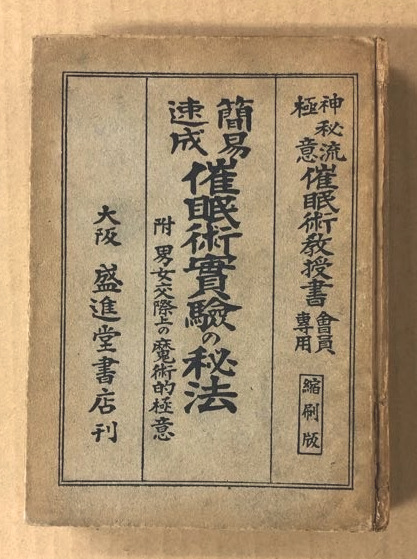 神秘流
極意
催眠術教授書
會員
專用
縮刷版
簡易
速成
催眠術實驗の秘法
附 男女交際上の魔術的極意
大阪 盛進堂書店刊